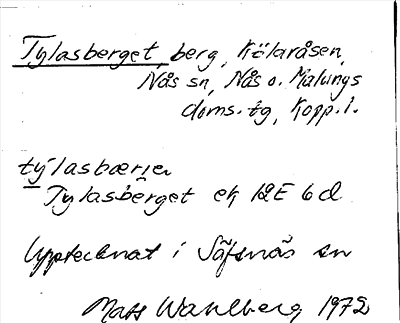 Tylasberget berg, Kölaråsen,
Nås sn, Nås o. Malungs
doms. tg, Kopp. l.
tỳlasbærjen
Tylasberget ek 12E 6d
Upptecknat i Säfsnäs sn
Mats Wahlberg 1972